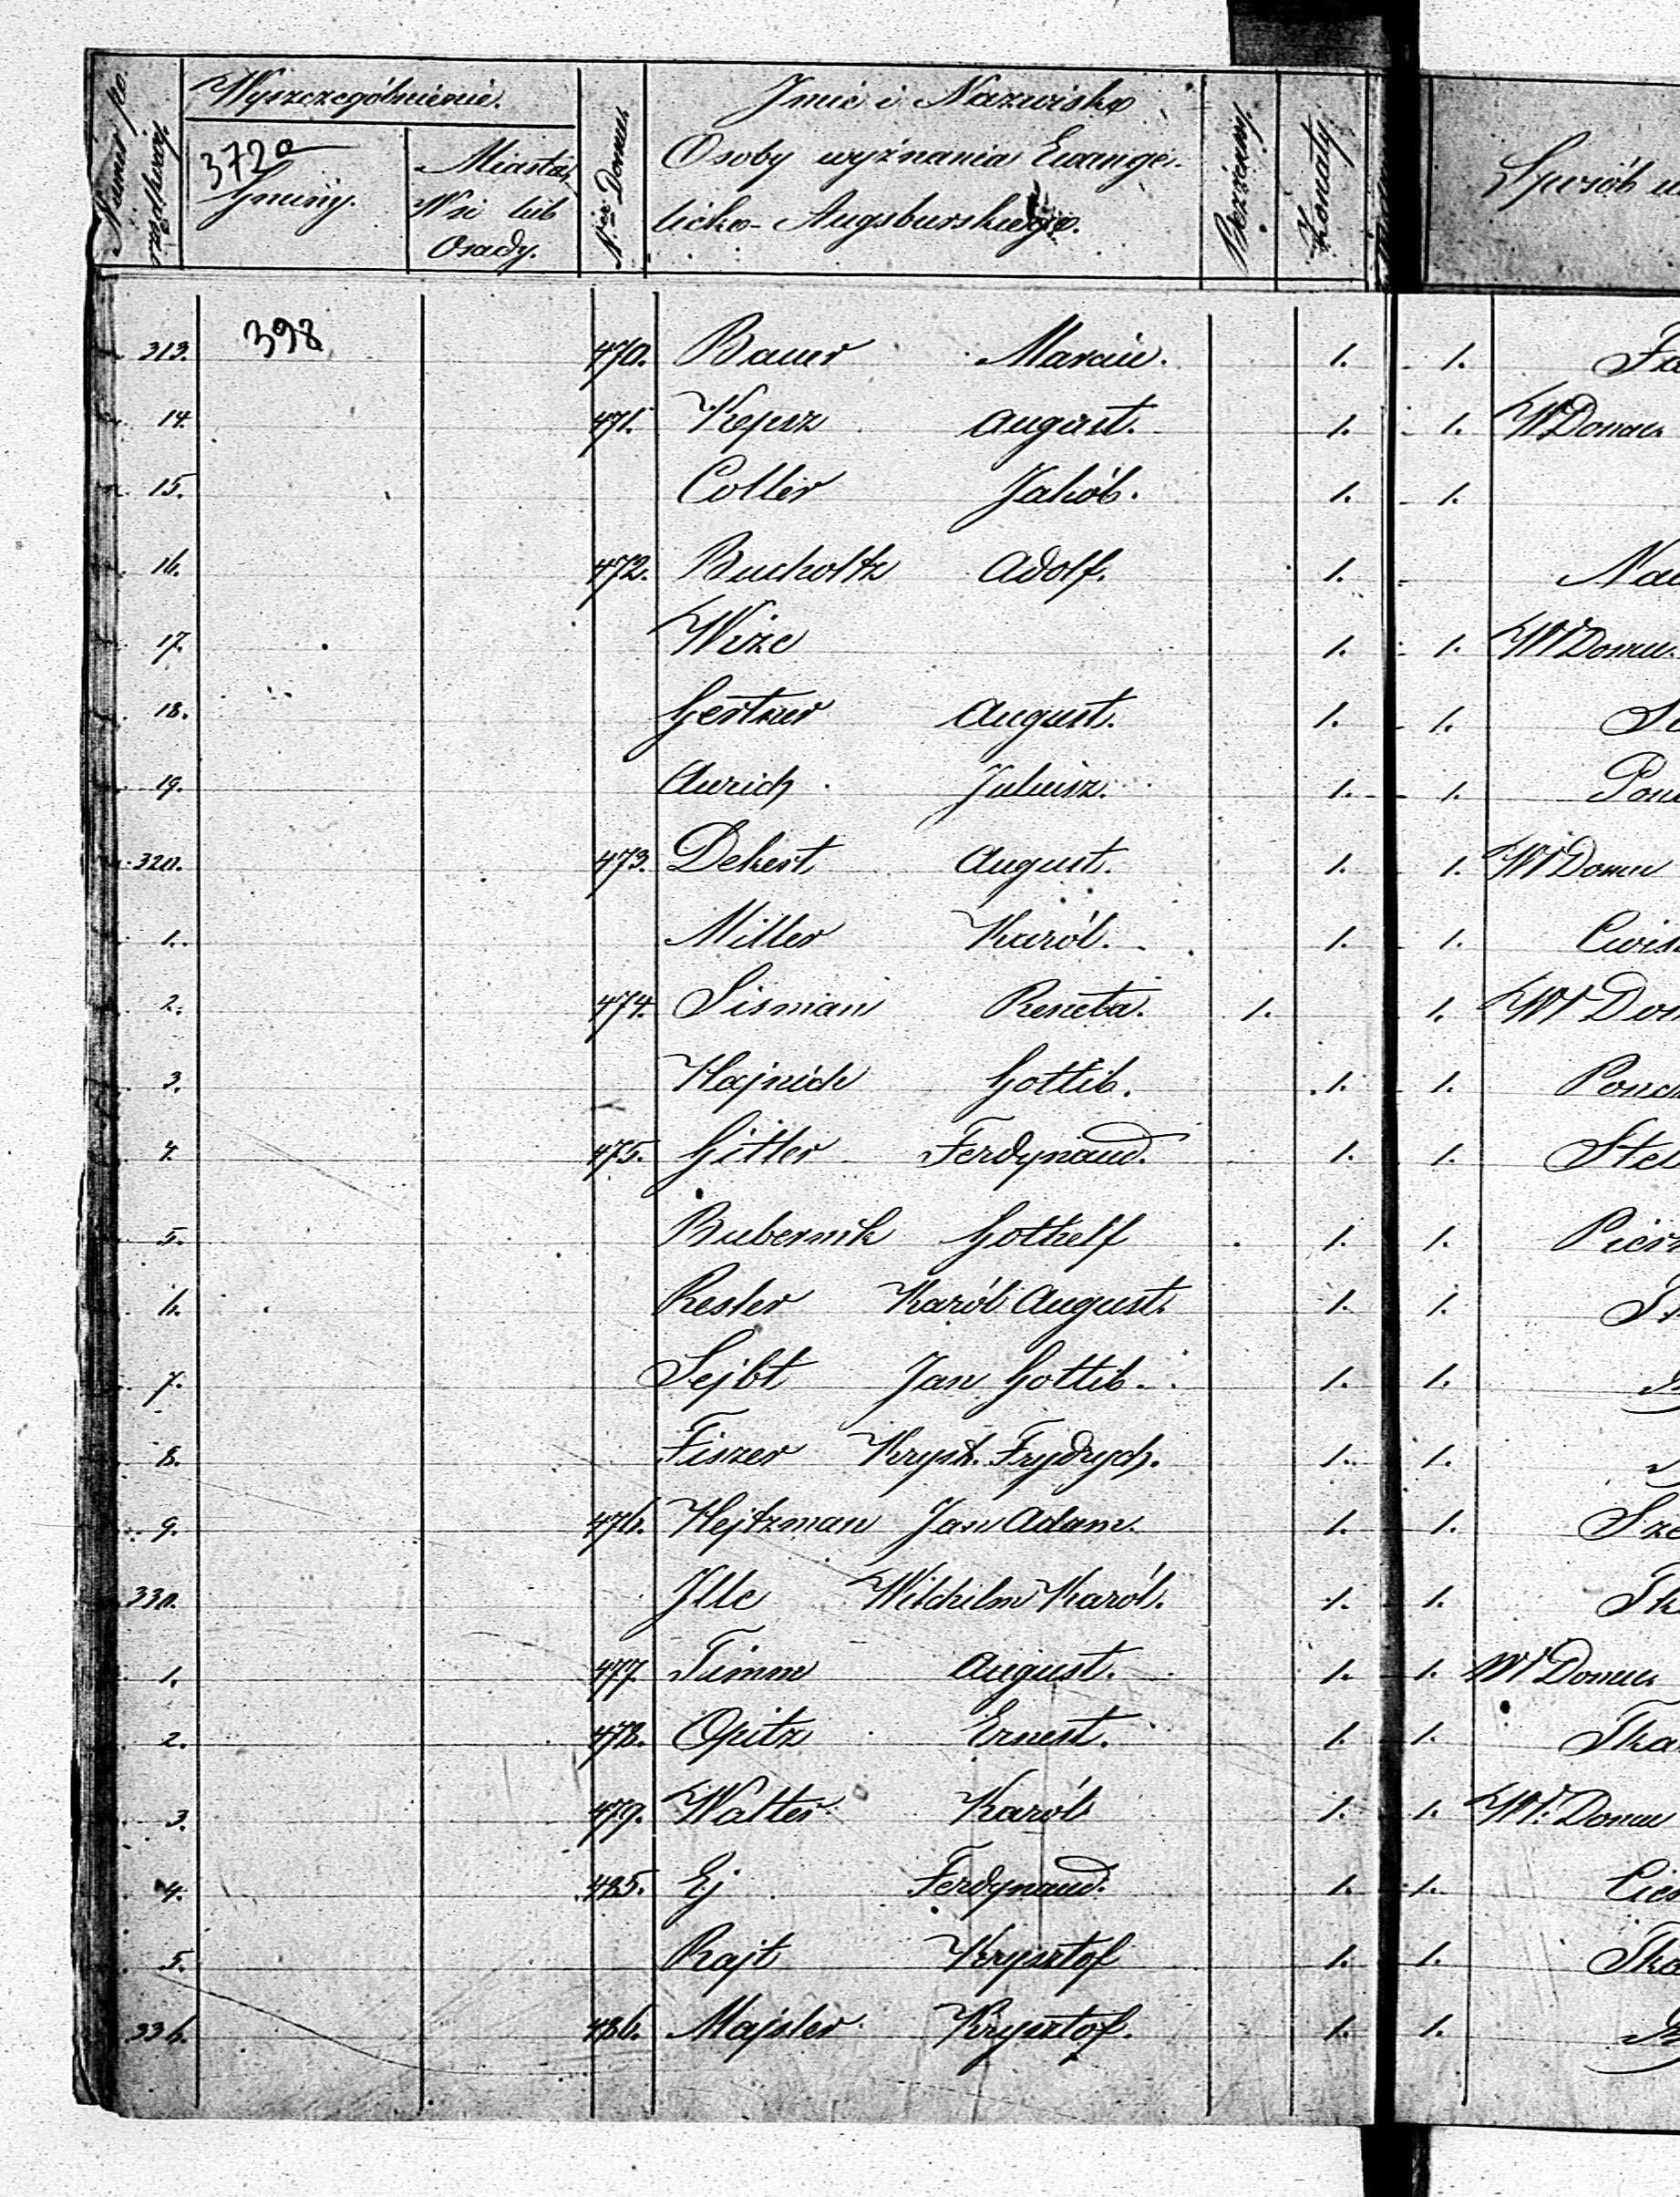 Numer po rządkowy.
Wyszczególnienie.
372a
Gminy.
Miasta,
Wsi lub
Osady.
Nr Domu.
Imie i Nazwisko
Osoby wyznania Ewange-
licko-Augsburskiego.
Bezżenny.
Żonaty.
Sposób u
398
313. 470. Bauer Marcin. 1. 1. Fa
14. 471. Kepsz August. 1. 1. Wł Domu
15. Coller Jakób. 1. 1.
16. 472. Bucholtz Adolf. 1. Na
17. Wize 1. 1. Wł Domu.
18. Gertner August. 1. 1.
19. Aurich Juliusz. 1. 1. Poń
320. 473. Dekert August. 1. 1. Wł Domu
1. Miller Karól. 1. 1.
2. 474. Sisman Reneta. 1. 1. Wł Dom
3. Hajnich Gottlib. 1. 1. Pończ
4. 475. Gitler Ferdynand. 1. 1. Stel
5. Bubernik Gothelf 1. 1.
6. Resler Karól August. 1. 1.
7. Sejbt Jan Gottlib. 1. 1.
8. Fiszer Kryst. Frydrych. 1. 1.
9. 476. Hejtzman Jan Adam. 1. 1. Sze
330. Ille Wilchelm Karól. 1. 1. Tk
1. 477. Timme August. 1. 1. Wł Domu
2. 478. Opitz Ernest. 1. 1. Tka
3. 479. Walter Karól 1. 1. Wł. Domu
4. 485. Ej Ferdynand. 1. 1. Cieś
5. Rajt Krysztof 1. 1. Tka
336. 486. Majsler Krysztof. 1. 1.